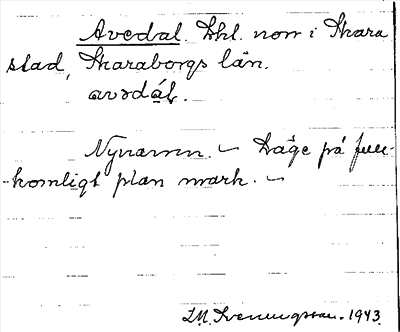 Avedal. Lhl. norr i Skara
stad, Skaraborgs län.
avədál.
Nynamn. – Läge på full-
komligt plan mark. –
I.M. Svenungsson. 1943.